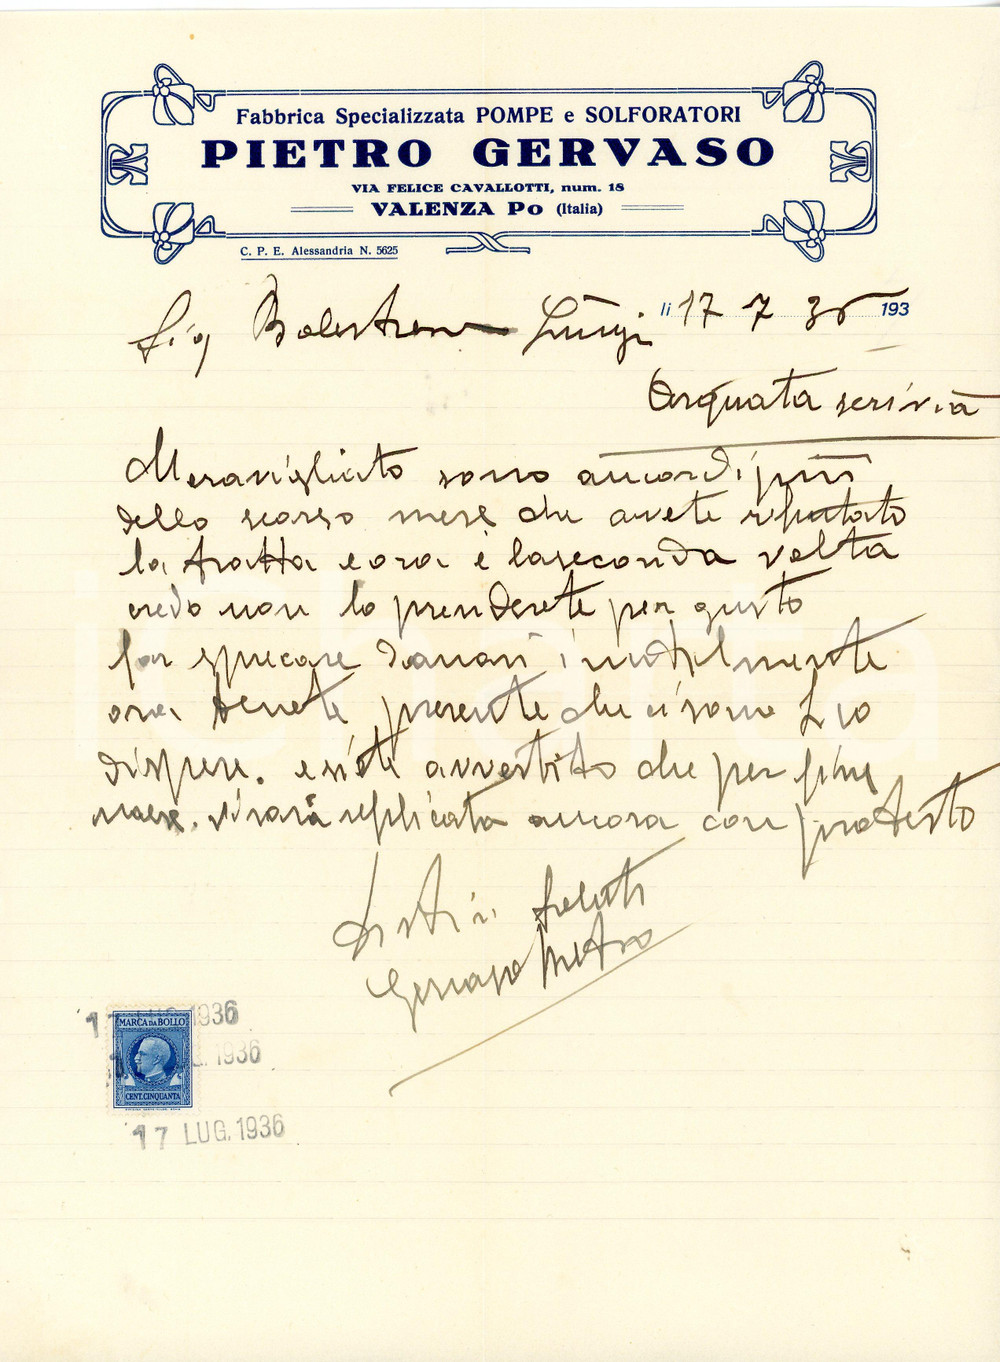 Fabbrica Specializzata POMPE e SOLFORATORI
PIETRO GERVASO
VIA FELICE CAVALLOTTI, num. 18
VALENZA Po (Italia)
C. P. E. Alessandria N. 5625
li 17 7 36 193
Sig Balestrero Luigi
Arquata scrivia
Meravigliato sono ancor di più
dello scorso mese che avete rifiutato
la tratta e ora è la seconda volta
credo non lo prenderete per gusto
far sprecare danari inutilmente
ora tenete presente che ci sono L 10
di spese. e siete avvertito che per fine
mese. sirarà replicata ancora con protesto
Distinti saluti
Gervaso Pietro
17 LUG. 1936
MARCA DA BOLLO
1936
CENT. CINQUANTA
17 LUG. 1936